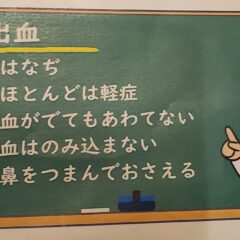 出血
はなぢ
ほとんどは軽症
血がでてもあわてない
血はのみ込まない
鼻をつまんでおさえる